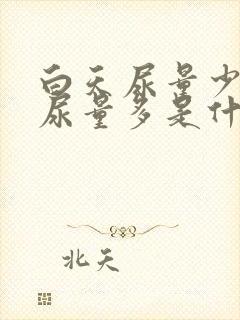 白天尿量少
尿量多是什
北天